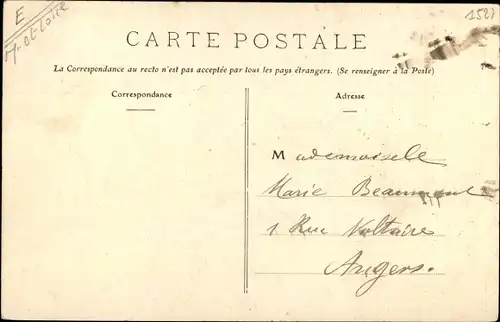 E
M. et Loire
1527
CARTE POSTALE
La Correspondance au recto n'est pas acceptée par tous les pays étrangers. (Se renseigner à la Poste)
Correspondance
Adresse
Mademoiselle
Marie Beaumont
1 Rue Voltaire
Angers.